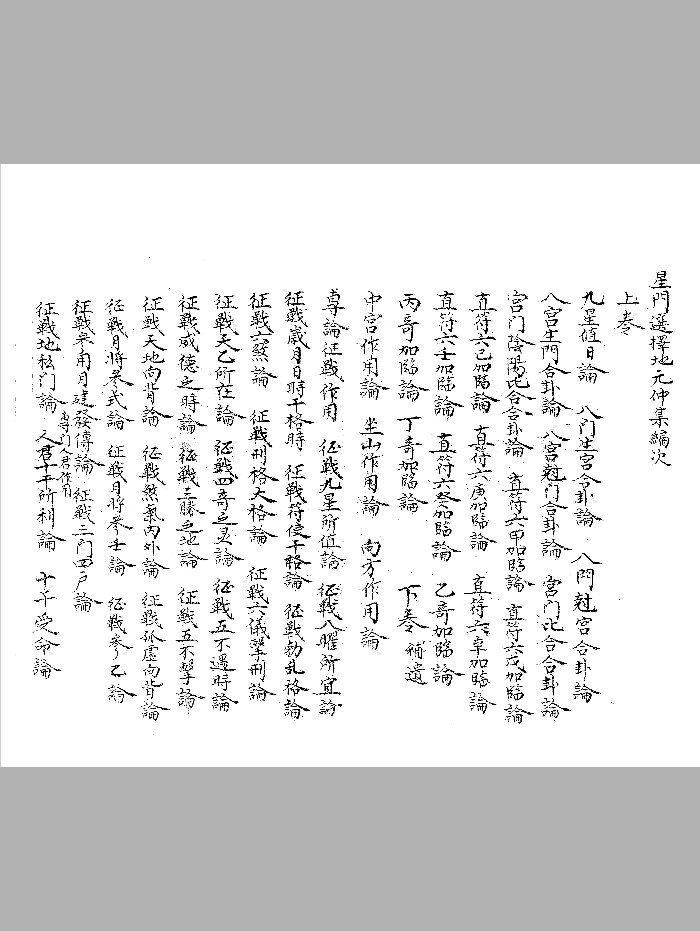 星門選擇地元仲集編次
上卷
九星值日論　八門生宮合卦論　八門尅宮合卦論
八宮生門合卦論　八宮尅門合卦論　宮門比合合卦論
宮門陰陽比合合卦論　直符六甲加臨論　直符六戊加臨論
直符六己加臨論　直符六庚加臨論　直符六辛加臨論
直符六壬加臨論　直符六癸加臨論　乙奇加臨論
丙奇加臨論　丁奇加臨論　下卷補遺
中宮作用論　坐山作用論　向方作用論
專論征戰作用　征戰九星所值論　征戰八曜所宜論
征戰歲月日時干格時　征戰符使干格論　征戰勃亂格論
征戰六煞論　征戰刑格大格論　征戰六儀擊刑論
征戰天乙所在論　征戰四奇之灵論　征戰五不遇時論
征戰威德之時論　征戰三勝之地論　征戰五不擊論
征戰天地向背論　征戰煞氣內外論　征戰孤虛向背論
征戰月將參式論　征戰月將參壬論　征戰參乙論
征戰專用月建發傳論　征戰三門四户論
專門人君作用
征戰地私門論　人君十干所利論　十千受命論